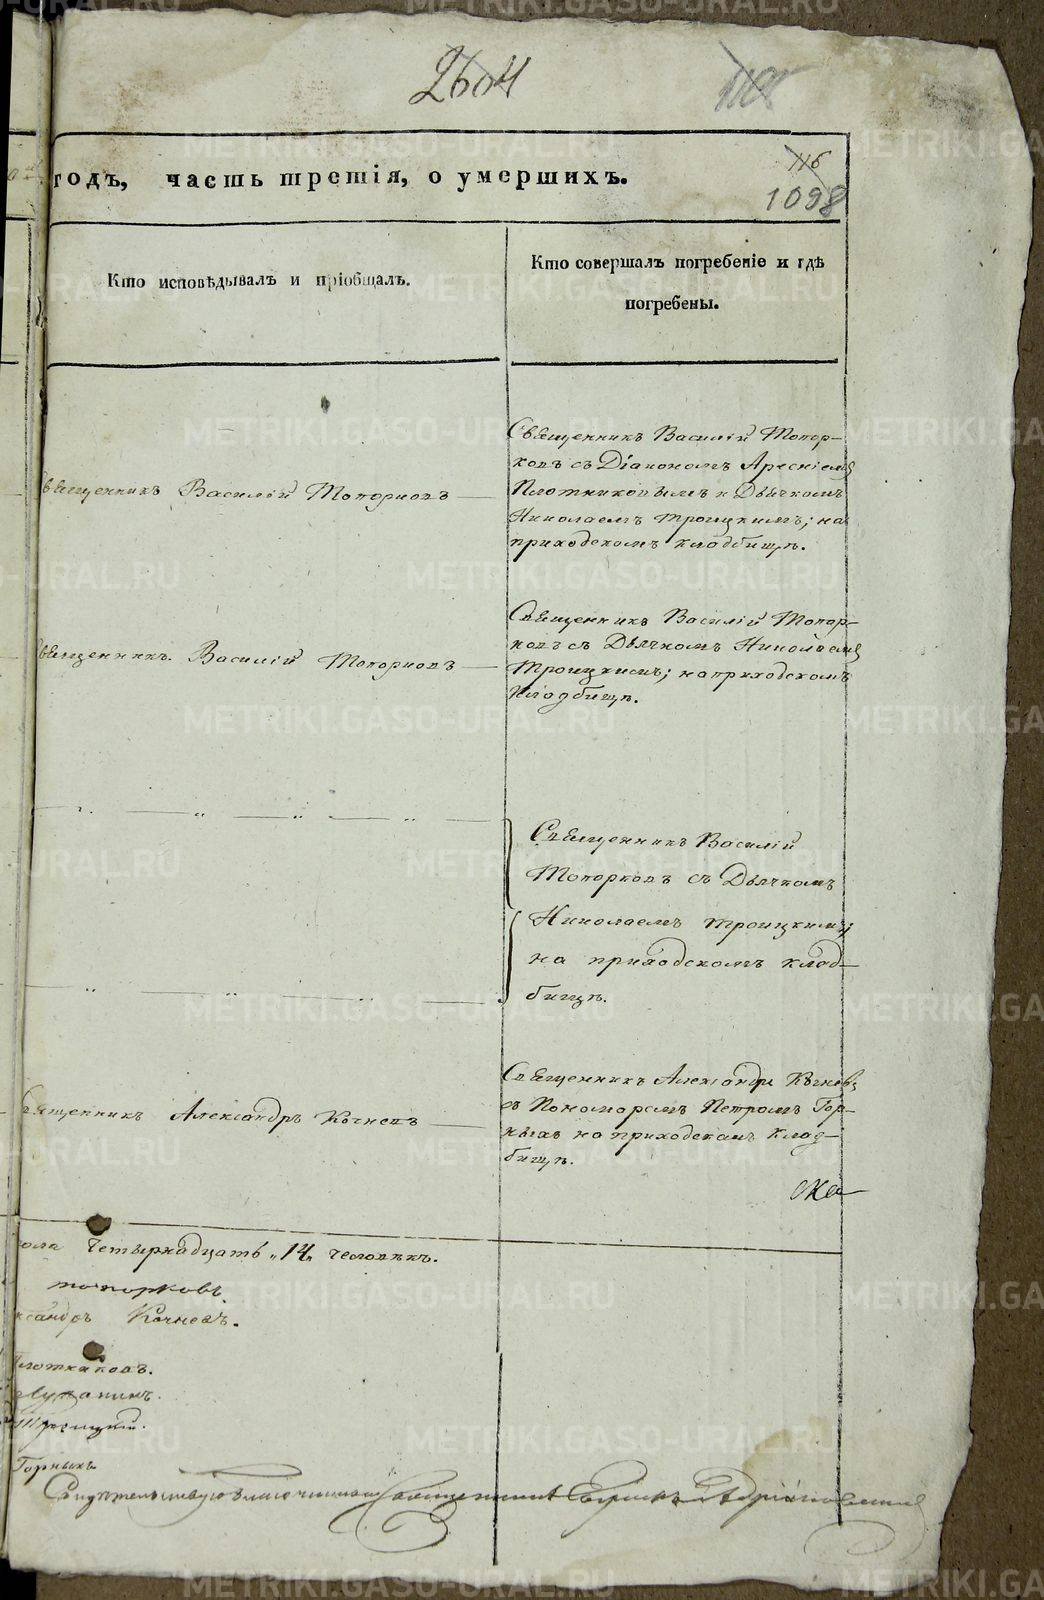 2604
116
1098
годъ, часть третія, о умершихъ.
Кто исповѣдывалъ и пріобщалъ.
Кто совершалъ погребеніе и гдѣ
погребены.
Священникъ Василій Топорковъ
Священникъ Василій Топор-
ковъ съ Діакономъ Арсеніемъ
Плотниковымъ и Дьячкомъ
Николаемъ Троицкимъ; на
приходскомъ кладбищѣ.
Священникъ Василій Топорковъ
Священникъ Василій Топор-
ковъ съ Дьячкомъ Николаемъ
Троицкимъ; на приходскомъ
кладбищѣ.
Священникъ Василій
Топорковъ съ Дьячкомъ
Николаемъ Троицкимъ;
на приходскомъ клад-
бищѣ.
Священникъ Александръ Кочневъ
Священникъ Александръ Кочневъ
съ Пономаремъ Петромъ Гор-
ныхъ на приходскомъ клад-
бищѣ.
пола Четырнадцать „14„ человѣкъ.
Топорковъ.
ксандръ Кочневъ.
Плотниковъ.
Луканинъ.
Троицкій.
Горныхъ
Свидѣтельствую Благочинный Священникъ
METRIKI.GASO-URAL.RU